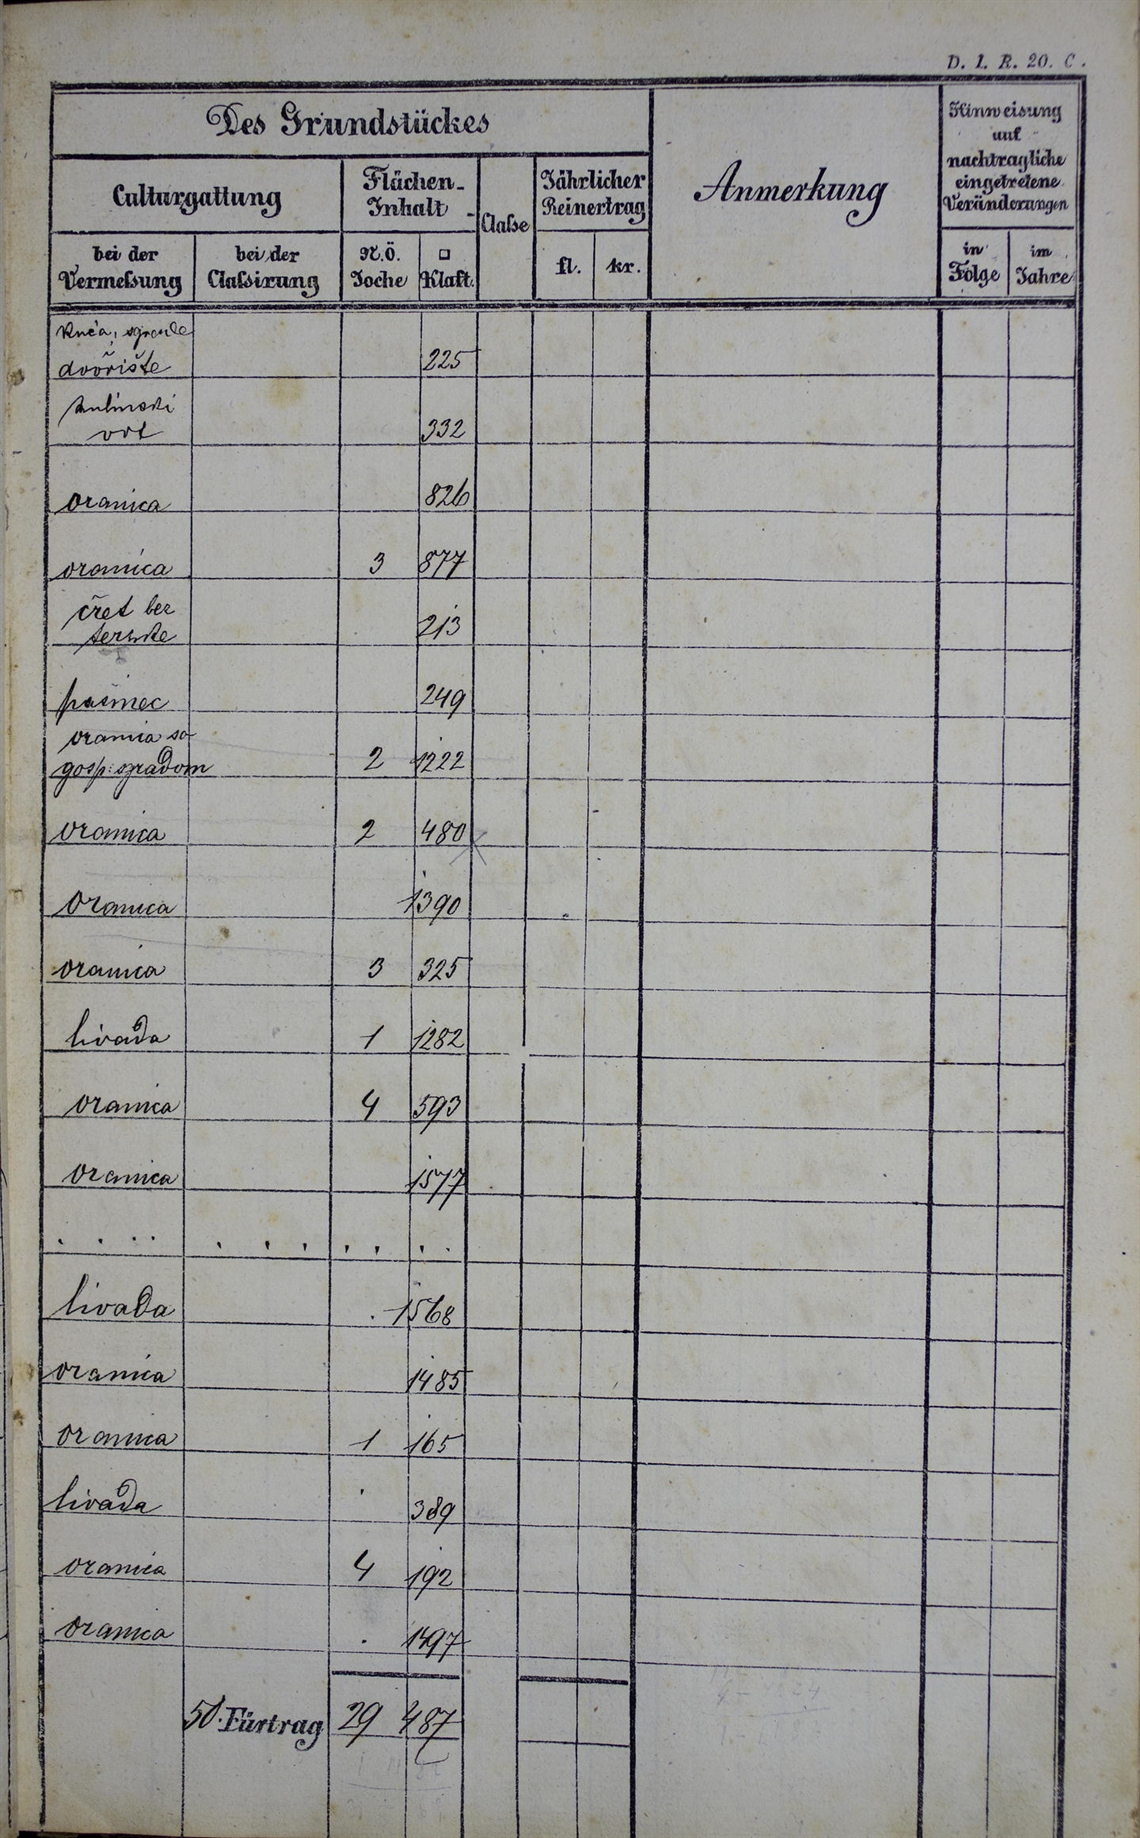 D. I. R. 20. C.
Des Grundstückes
Anmerkung
Hinweisung
auf
nachtragliche
eingetretene
Veränderungen
Culturgattung
Flächen-
Inhalt
Classe
Jährlicher
Reinertrag
bei der
Vermessung
bei der
Classirung
N.Ö.
Joche
□
Klaft.
fl.
kr.
in
Folge
im
Jahre
kuća,
dvorište 225
vrt 332
oranica 826
oranica 3 877
čret bez
213
pašnec 249
oranica sa
gosp: zgradom 2 1222
oranica 2 480
oranica 1390
oranica 3 325
livada 1 1282
oranica 4 593
oranica 1577
. . . . . . . . . . .
livada . 1568
oranica 1485
oranica 1 165
livada . 389
oranica 4 192
oranica . 1497
Fürtrag 29 487